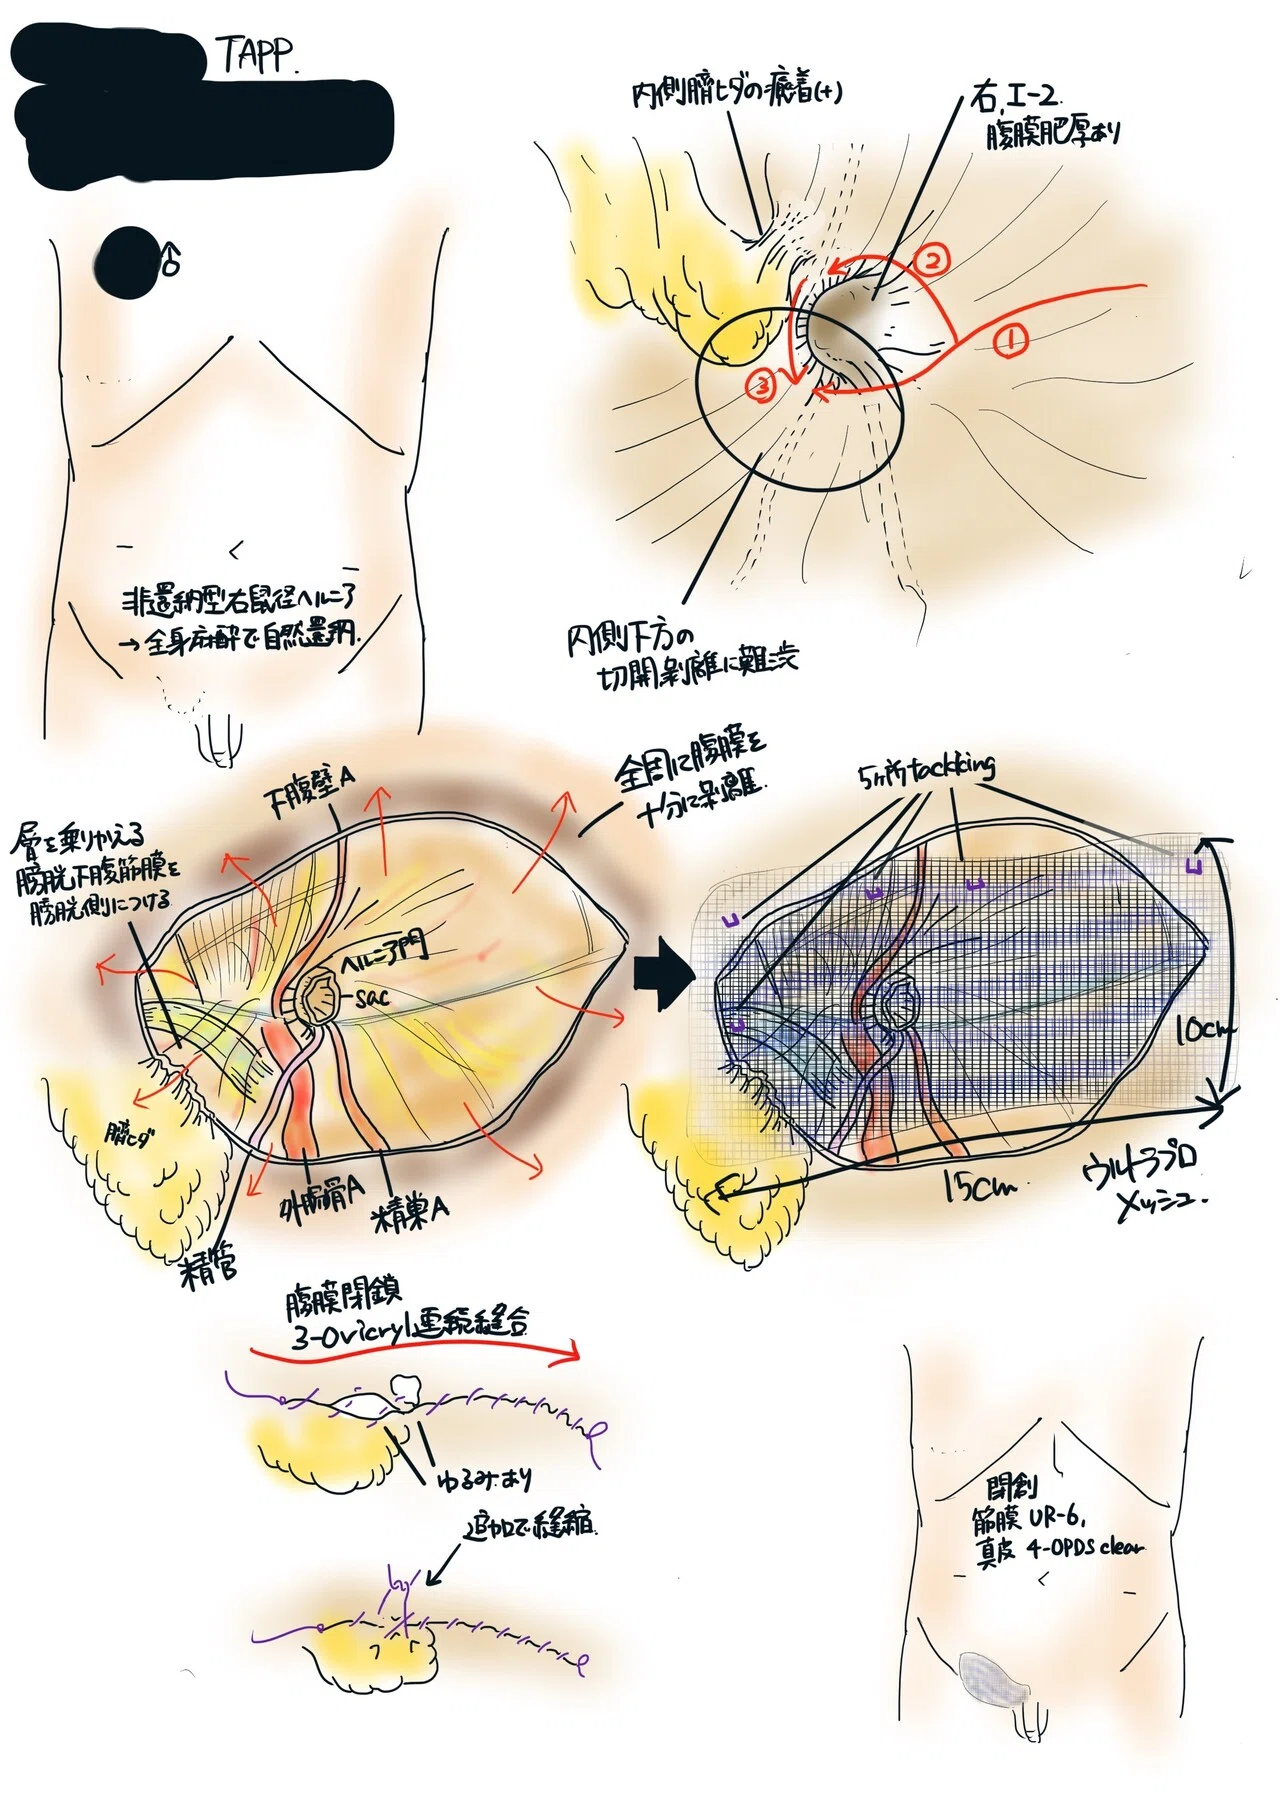 TAPP.
内側臍ヒダの癒着(+)
右, I-2.
腹膜肥厚あり
②
①
③
♂
非還納型右鼠径ヘルニア
→全身麻酔で自然還納.
内側下方の
切開剥離に難渋
下腹壁A
全周に腹膜を
十分に剥離.
層を乗りかえる
膀胱下腹筋膜を
膀胱側につける
ヘルニア門
sac
臍ヒダ
精管
外腸骨A
精巣A
5ヶ所tackking
10cm
15cm
ウルトラプロ
メッシュ.
腹膜閉鎖
3-0vicryl連続縫合
ゆるみあり
追加で縫縮.
閉創
筋膜 UR-6,
真皮 4-0PDS clear